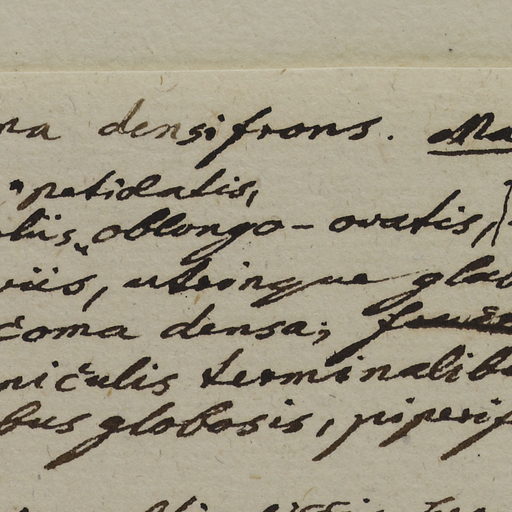 ma densifrons. Ma
petiolatis,
liis oblongo-ovatis,
viis, utringue glab
coma densa;
niculis terminalibu
bus globosis, piperif